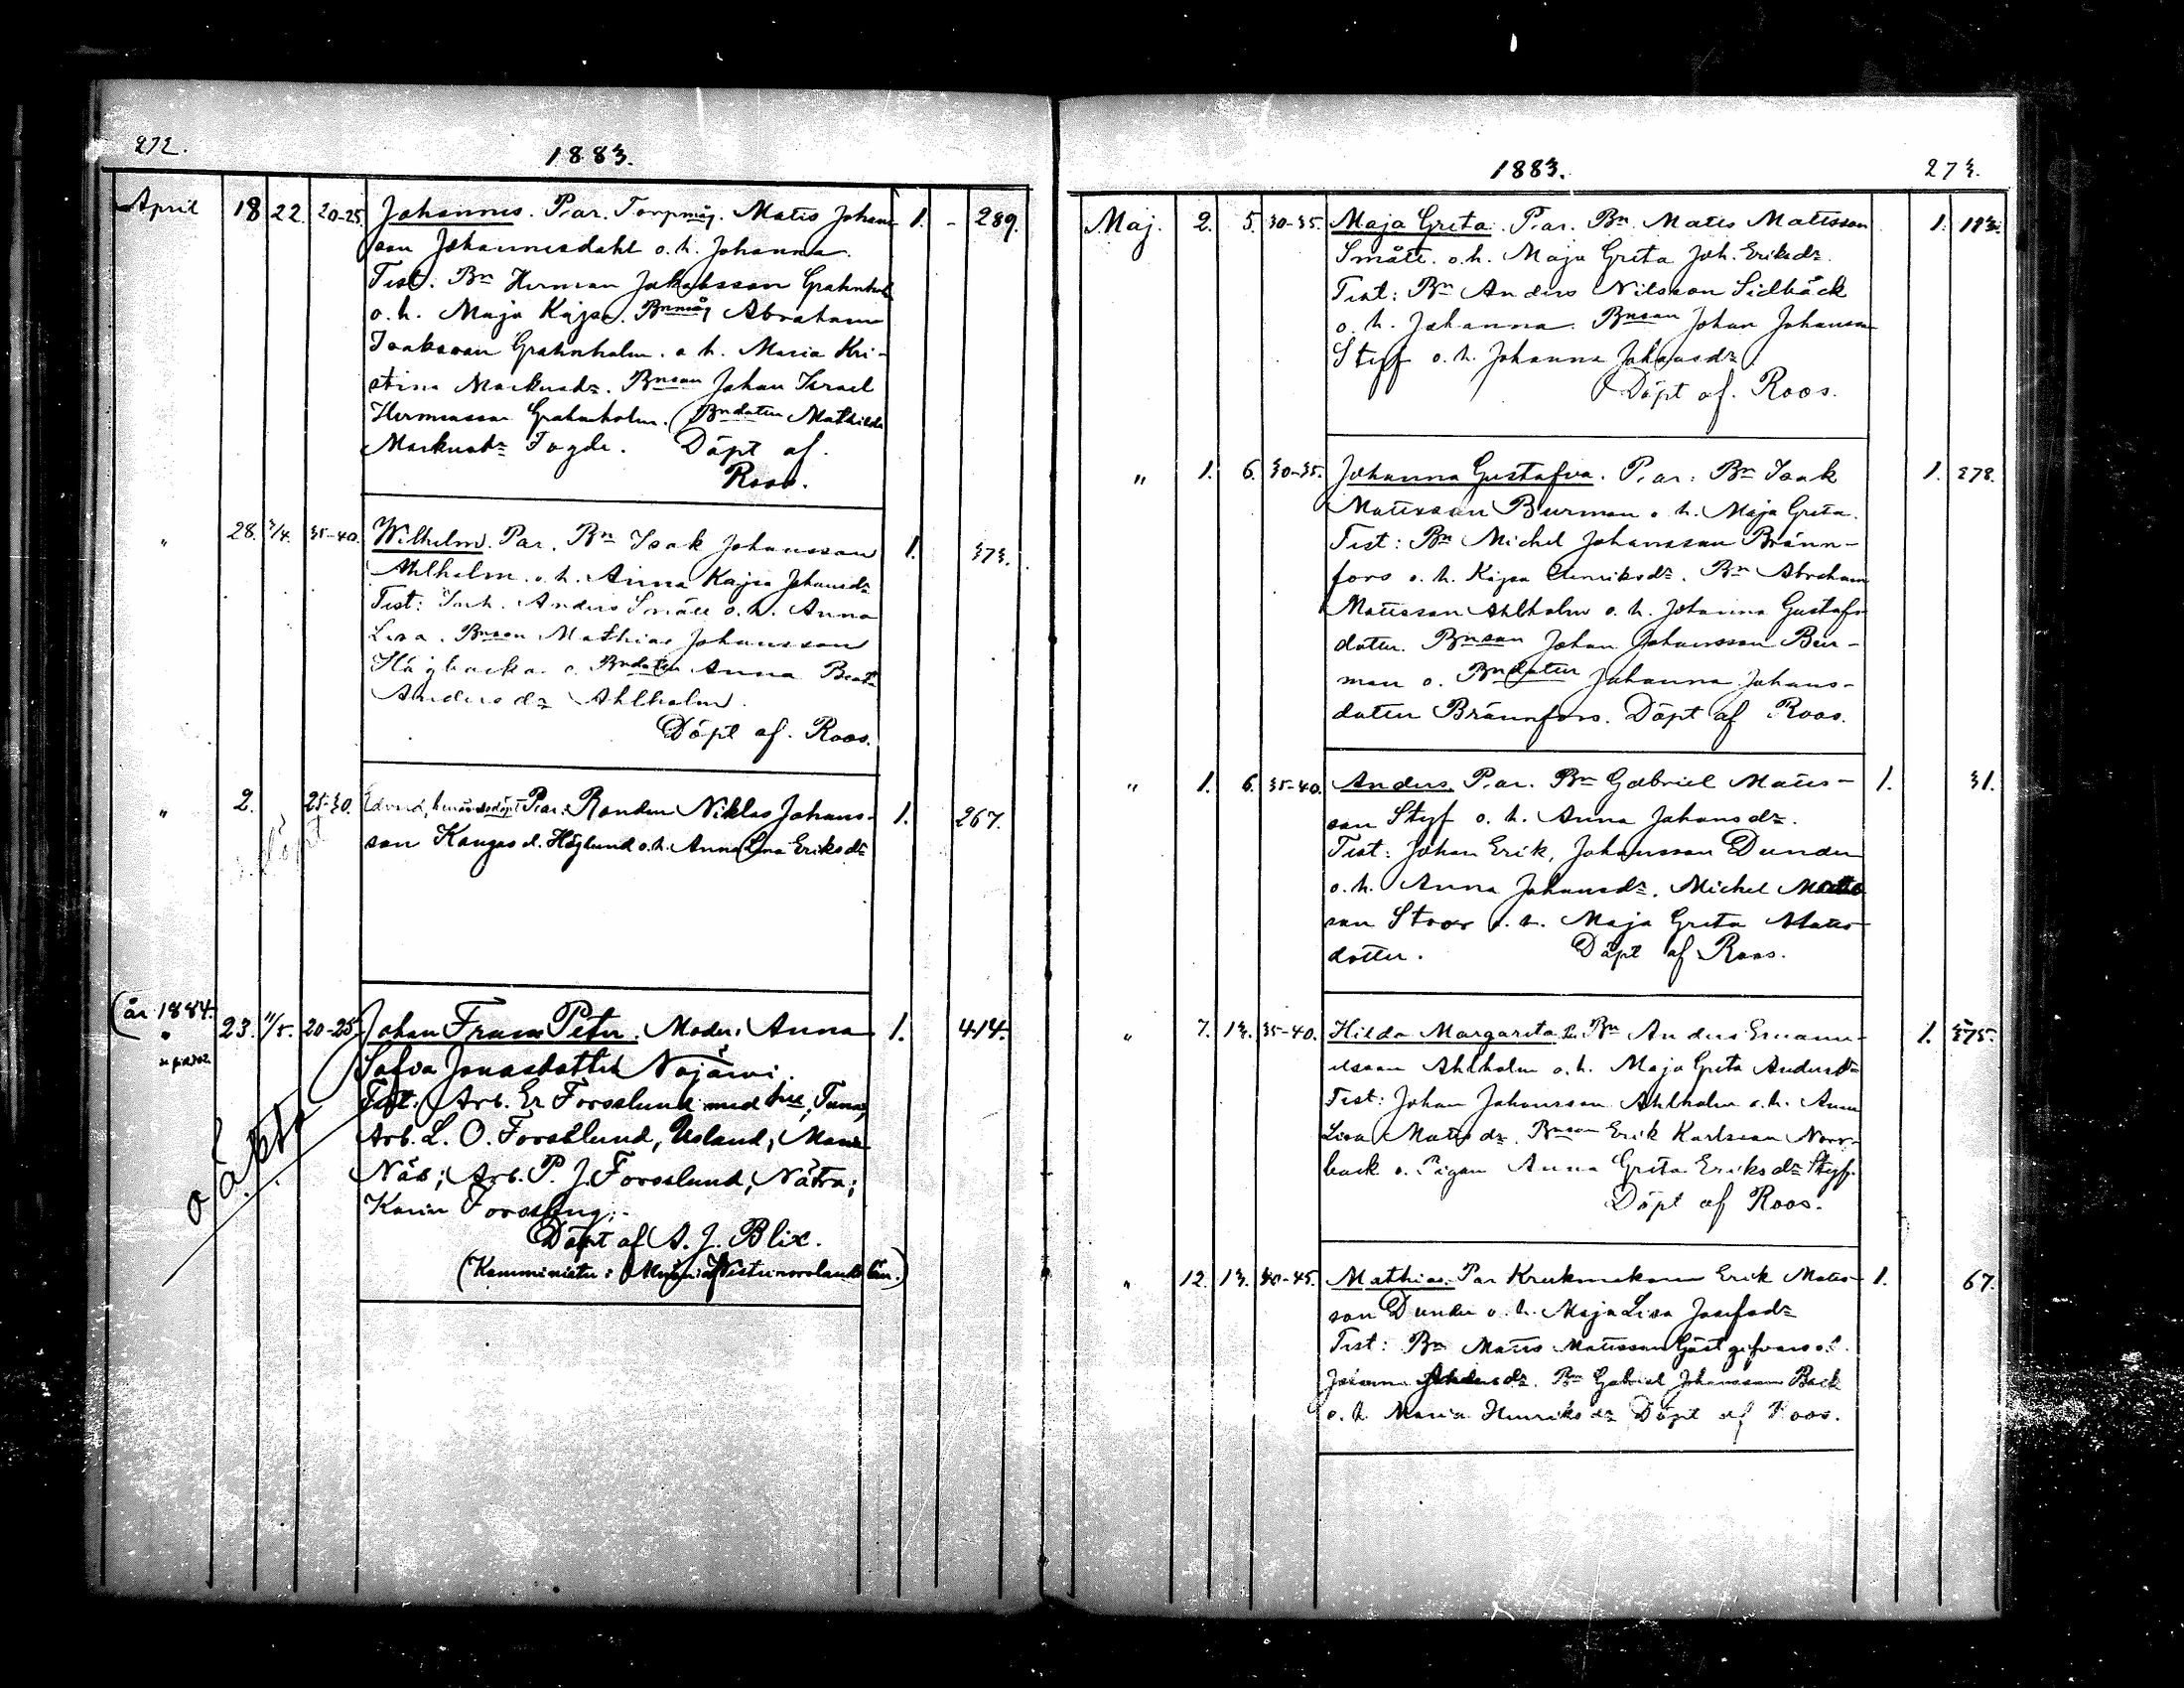 272.
1883.
April 18 22. 20-25. Johannes. Par. Torpmåg. Mats Johans- 1. - 289.
son Johannesdahl o. h. Johanna.
Test: Bn Herman Jakobsson Grahnholm
o. h. Maja Kajsa. Bnmåg Abraham
Isaksson Grahnholm. o h. Maria Kri-
stina Markusdr. Bnson Johan Israel
Hermansson Grahnholm. Bndotter Mathilda
Markusdr Fogde. Döpt af.
Roos.
" 28. 35-40. Wilhelm. Par. Bn Isak Johansson 1. 373.
Ahlholm. o. h. Anna Kajsa Johansdr
Test: Inh. Anders Smått o. h. Anna
Lisa. Bnson Mathias Johansson
Högbacka o. Bndotter Anna Beata
Andersdr Ahlholm.
Döpt af. Roos.
" 2. 25-30. Edvard, Par: Bonden Niklas Johans- 1. 267.
son Kangas d. Höglund o. h. Anna Lena Eriksdr
(år 1884.
" 23. 11/5. 20-25. Johan Frans Petter. Moder: Anna 1. 414.
Sofva Jonasdotter Nojärvi.
Test: Arb. Er Forsslund med hu, Tuna,
Arb. L. O. Forsslund, Usland; Maria
Näs; Arb. P. J. Forsslund, Nätra;
Karin Forssling;
Döpt af A. J. Blix.
(Komminister i Westernorrlands län.)
oäkta
1883. 273.
Maj. 2. 5. 30-35. Maja Greta. Par. Bn. Mats Matsson 1. 193.
Smått. o. h. Maja Greta Joh. Eriksdr.
Test: Bn Anders Nilsson Sidbäck
o. h. Johanna. Bnson Johan Johansson
Styf o. h. Johanna Johansdr.
Döpt af. Roos.
" 1. 6. 30-35. Johanna Gustafva. Par: Bn Isak 1. 378.
Matsson Burman o. h. Maja Greta.
Test: Bn Michel Johansson Bränn-
fors o. h. Kajsa Henriksdr. Bn Abraham
Matsson Ahlholm o. h. Johanna Gustafs
dotter. Bnson Johan Johansson Bur-
man o. Bndotter Johanna Johans-
dotter Brännfors. Döpt af Roos.
" 1. 6. 35-40. Anders. Par. Bn Gabriel Mats- 1. 31.
son Styf o. h. Anna Johansdr.
Test: Johan Erik, Johansson Dunder
o. h. Anna Johansdr. Michel Mats
son Stoor o. h. Maja Greta Mats-
dotter. Döpt af Roos.
" 7. 13. 35-40. Hilda Margareta. Par. Bn Anders Emanu- 1. 375.
elsson Ahlholm o. h. Maja Greta Andersdr
Test: Johan Johansson Ahlholm o. h. Anna
Lisa Matsdr. Bnson Erik Karlsson Norr-
back o. Pigan Anna Greta Eriksdr Styf.
Döpt af Roos.
" 12. 13. 40-45. Mathias. Par Krukmakaren Erik Mats- 1. 67.
son Dunder o. h. Maja Lisa Josefsdr
Test: Bn Mats Matsson Gästgifvars o. h.
Johanna Andersdr. Bn Gabriel Johansson Back
o. h Maria Henriksdr Döpt af Roos.